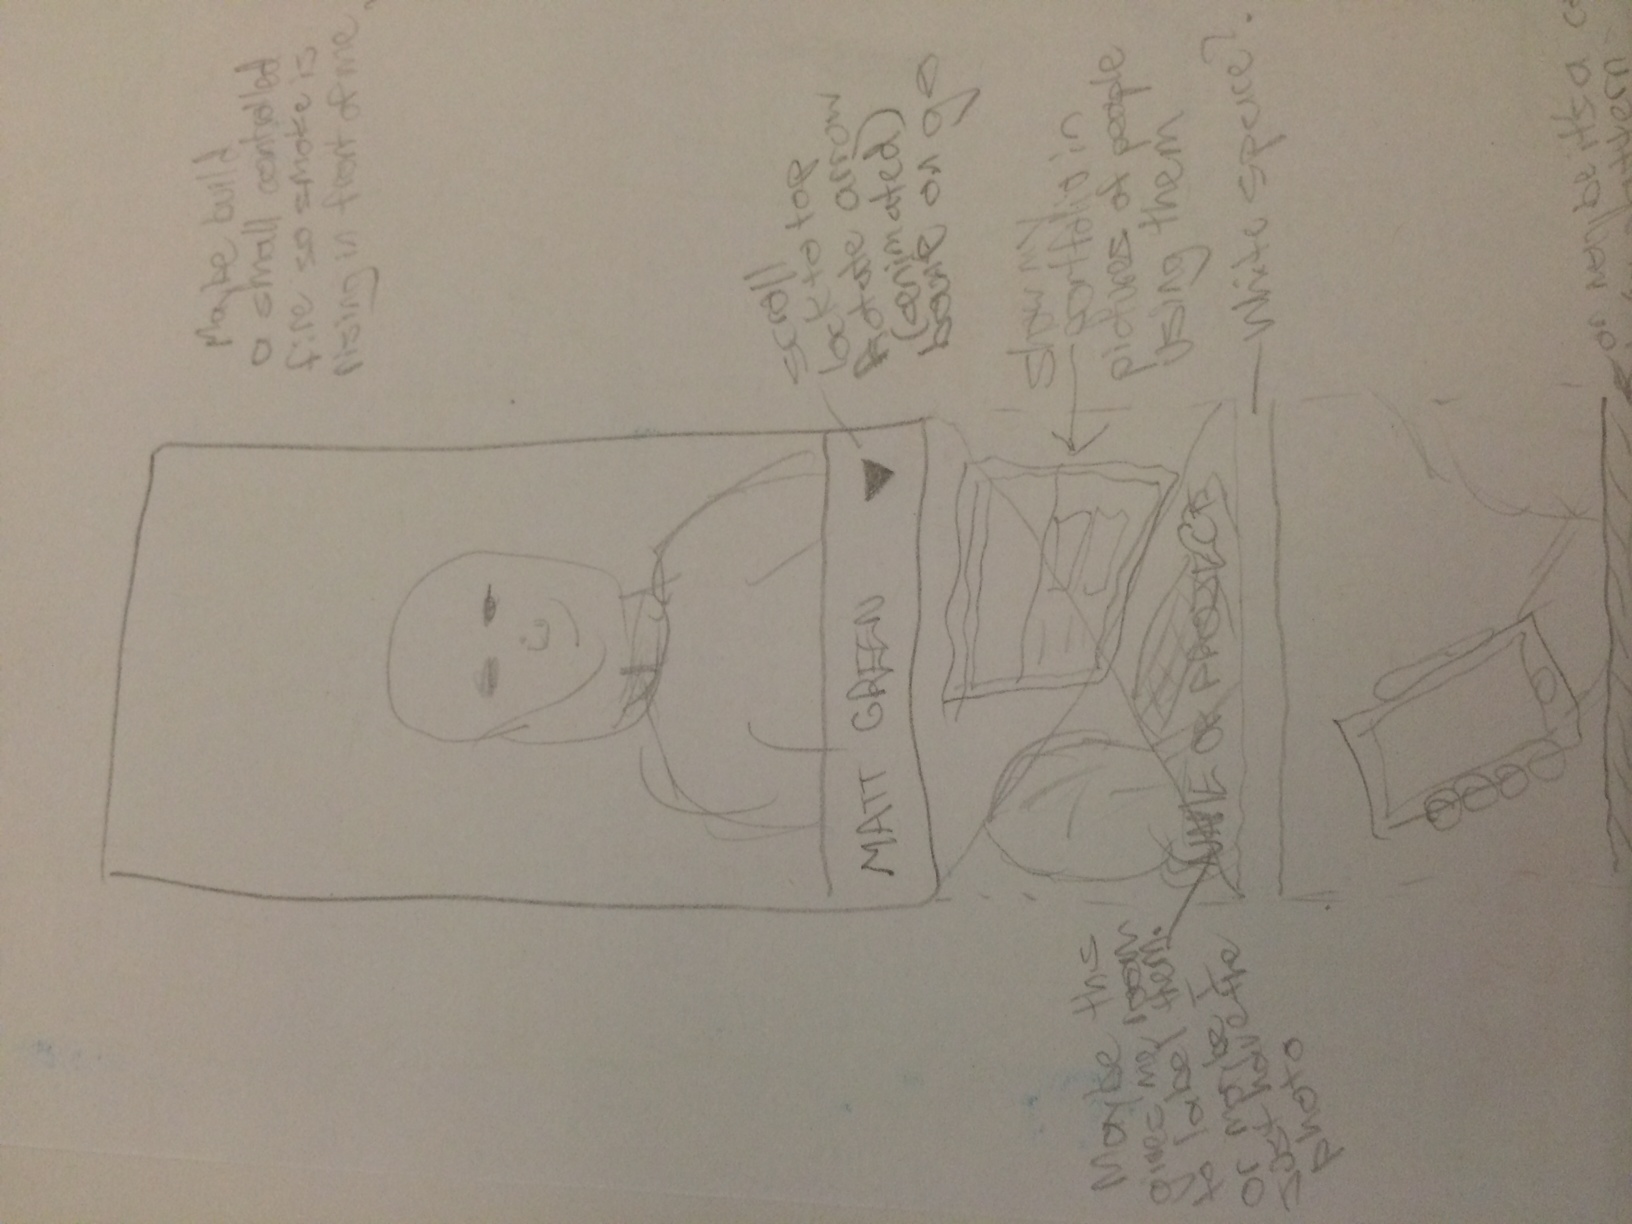 Maybe build
a small controlled
fire so smoke is
rising in front of me
scroll
lock to top
Rotate arrow
(animated)
on go
MATT GREEN
show my
portfolio in
pictures of people
using them
Maybe this
gives me room
to label them.
or maybe I
Just have the
photo
NAME OF PROJECT
White space?
or maybe it's a
pattern